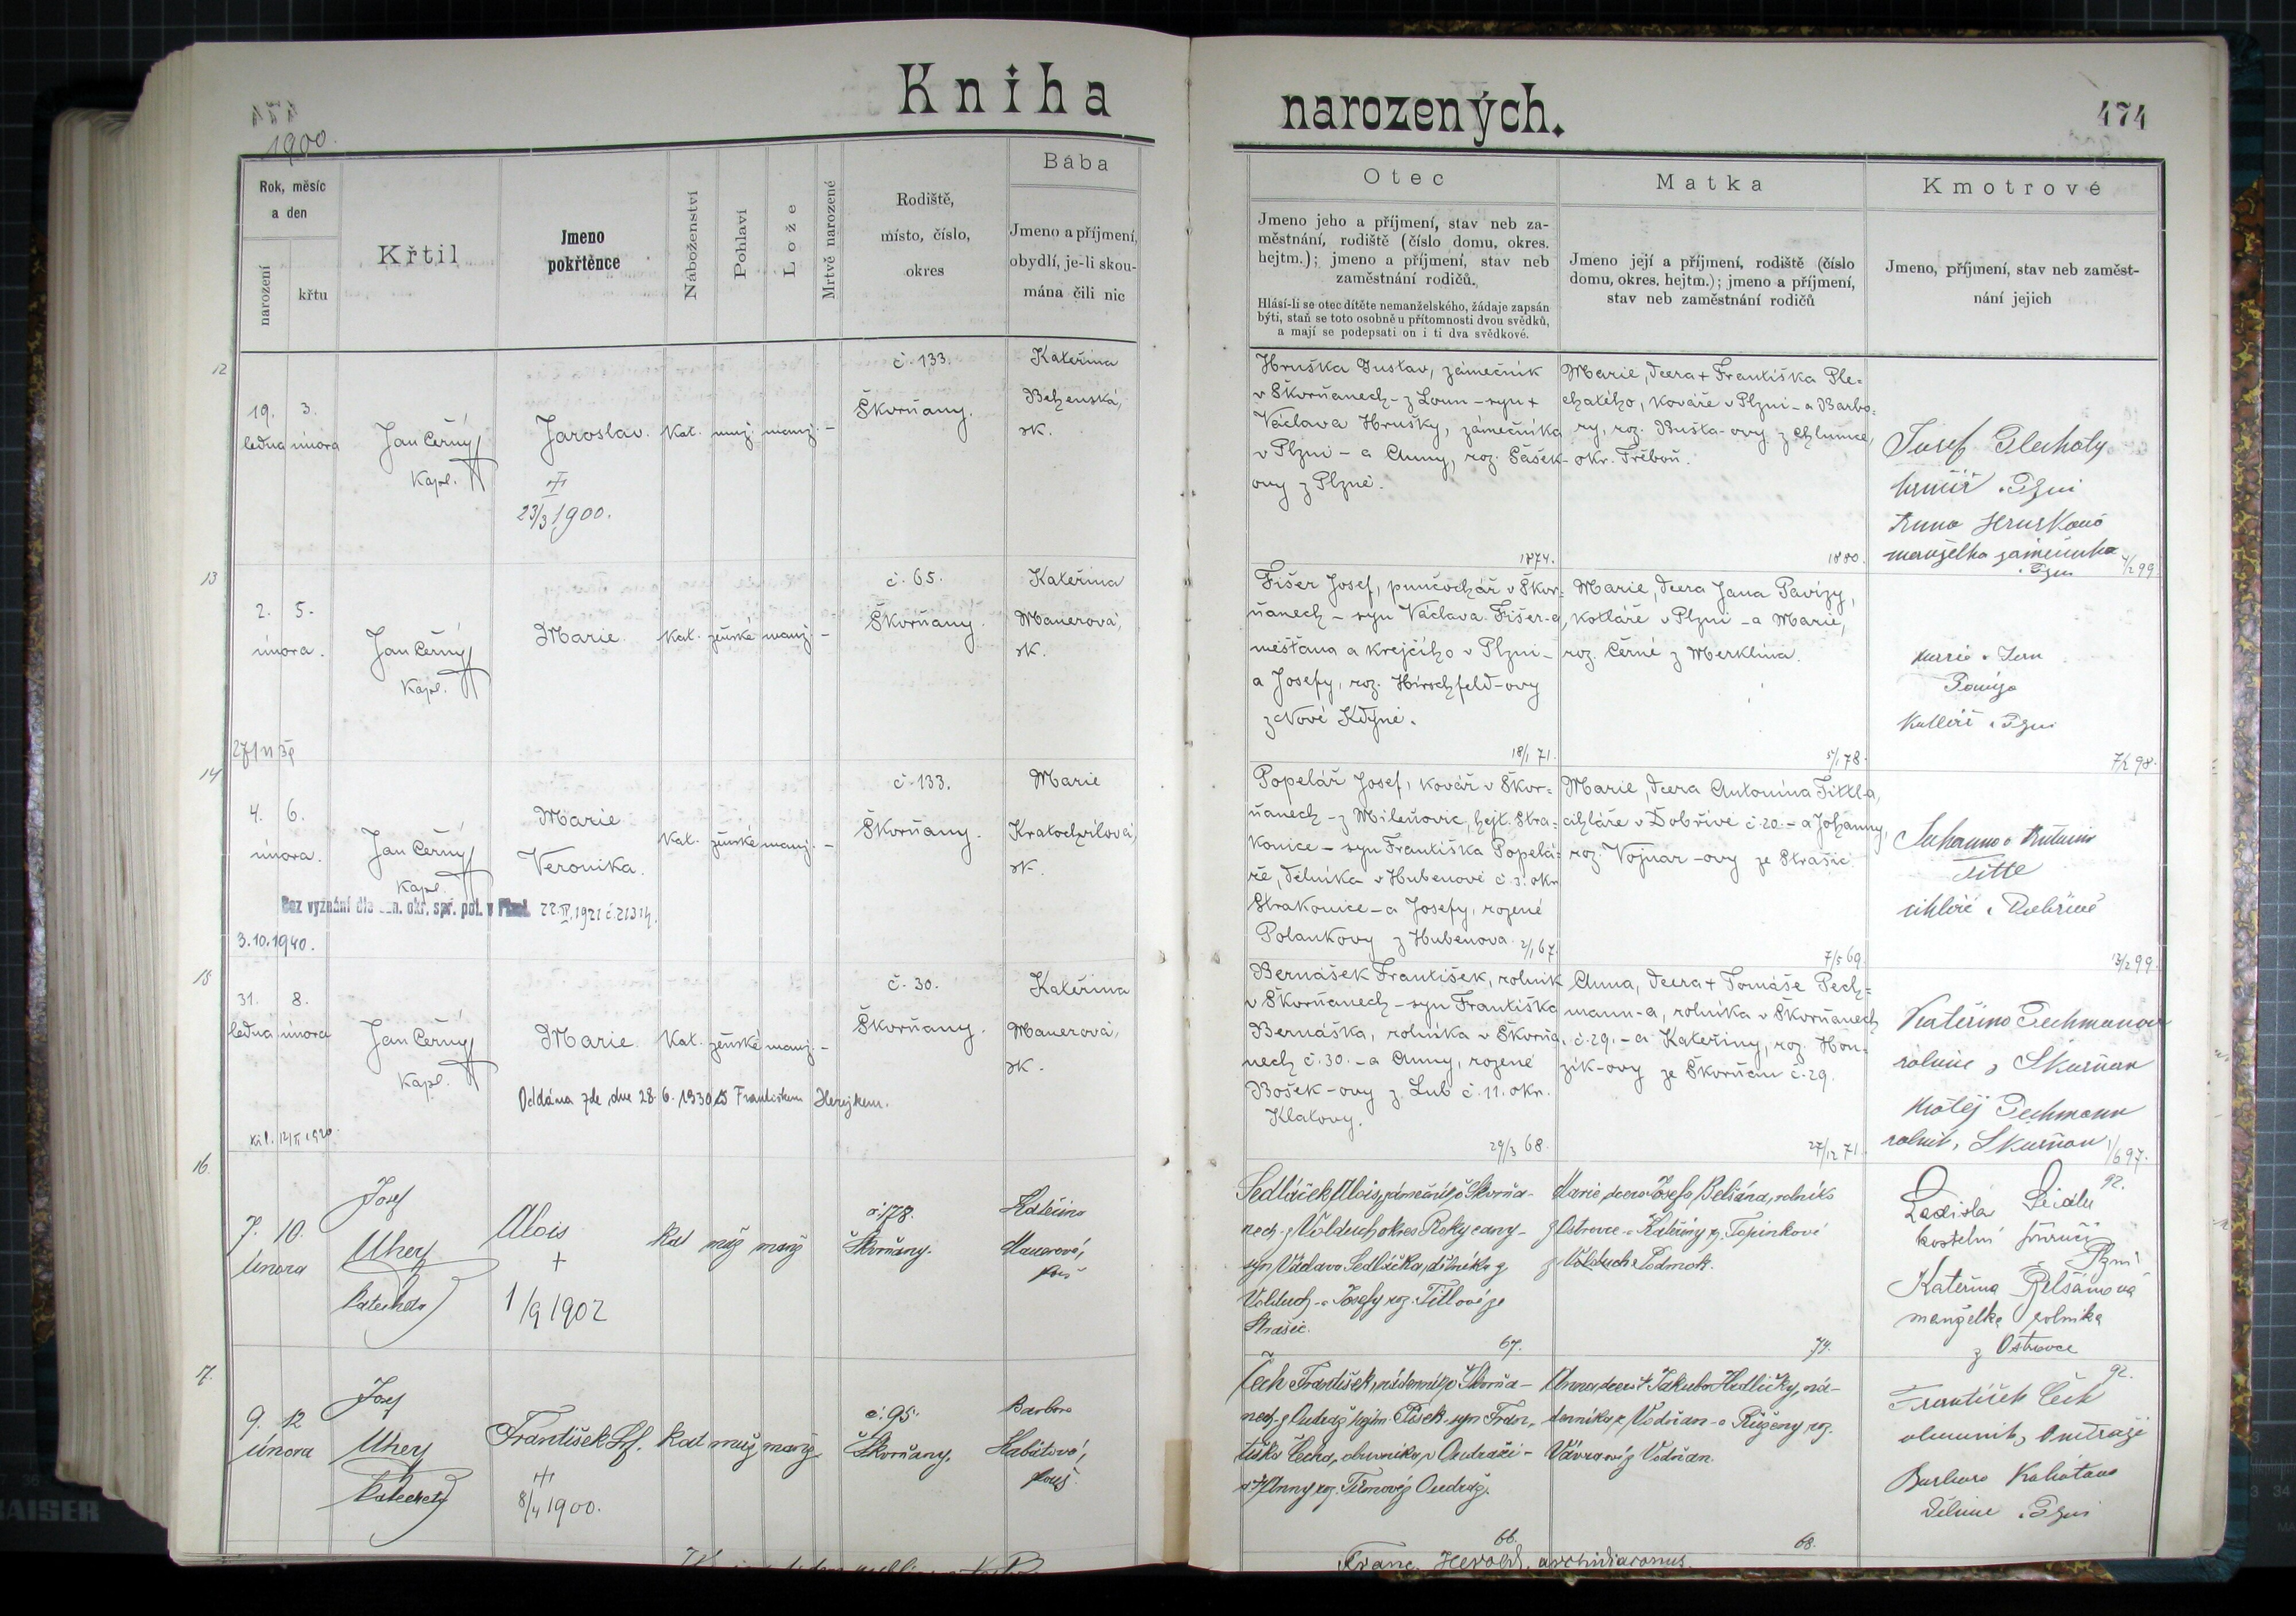 Kniha
narozených.
474
1900.
Rok, měsíc
a den
narození
křtu
Křtil
Jmeno
pokřtěnce
Náboženství
Pohlaví
Lože
Mrtvě narozené
Rodiště,
místo, číslo,
okres
Bába
Jmeno a příjmení,
obydlí, je-li skou-
mána čili nic
Otec
Jmeno jeho a příjmení, stav neb za-
městnání, rodiště (číslo domu, okres.
hejtm.); jmeno a příjmení, stav neb
zaměstnání rodičů.
Hlásí-li se otec dítěte nemanželského, žádaje zapsán
býti, staň se toto osobně u přítomnosti dvou svědků,
a mají se podepsati on i ti dva svědkové.
Matka
Jmeno její a příjmení, rodiště (číslo
domu, okres. hejtm.); jmeno a příjmení,
stav neb zaměstnání rodičů
Kmotrové
Jmeno, příjmení, stav neb zaměst-
nání jejich
12
19. 3.
ledna února
Jan Černý
Kapl.
Jaroslav.
23/3 1900.
Kat. muž. manž. -
č. 133.
Škvrňany.
Kateřina
Behenská,
zk.
Hruška Gustav, zámečník
v Škvrňanech - z Loun - syn +
Václava Hrušky, zámečníka
v Plzni - a Anny, roz. Šašek-
ovy z Plzně.
1874.
Marie, dcera + Františka Ple=
chatého, kováře v Plzni - a Barbo=
ry, roz. Bušta-ovy z Chlumce,
okr. Třeboň.
1880.
Josef Plechatý
v Plzni
Anna Hrušková
manželka zámečníka
v Plzni
4/2 99
13
2. 5.
února.
Jan Černý
Kapl.
Marie.
Kat. ženské manž. -
č. 65.
Škvrňany.
Kateřina
Mauerová,
zk.
Fišer Josef, punčochář v Škvr=
ňanech - syn Václava Fišer-a,
měšťana a krejčího v Plzni -
a Josefy, roz. Hirschfeld-ovy
z Nové Kdyně.
18/1 71.
Marie, dcera Jana Pavízy,
kotláře v Plzni - a Marie,
roz. Černé z Merklína.
5/1 78.
Marie a Jan
Pavíza
v Plzni
7/2 98.
14
4. 6.
února.
Jan Černý
Kapl.
Marie
Veronika.
Kat. ženské manž. -
č. 133.
Škvrňany.
Marie
Kratochvílová,
zk.
Bez vyznání dle okr. spř. pol. v Plzni 22. IV. 1921 č. 21314.
3.10.1940.
Popelář Josef, kovář v Škvr=
ňanech - z Mileňovic, hejt. Stra=
konice - syn Františka Popelá=
ře, dělníka v Hubenově č. 3. okr.
Strakonice - a Josefy, rozené
Polankovy z Hubenova.
2/1 67.
Marie, dcera Antonína Tittl-a,
cihláře v Dobřívě č. 20. - a Johanny,
roz. Vojnar-ovy ze Strašic
7/5 69.
Johanna a Antonín
Tittl
cihlář v Dobřívě
13/2 99.
15
31. 8.
ledna února
Jan Černý
Kapl.
Marie.
Kat. ženské manž. -
č. 30.
Škvrňany.
Kateřina
Mauerová,
zk.
Oddána zde dne 28. 6. 1930 s Františkem Herejkem.
Bernášek František, rolník
v Škvrňanech - syn Františka
Bernáška, rolníka v Škvrňa=
nech č. 30. - a Anny, rozené
Bošek-ovy z Lub č. 11. okr.
Klatovy.
29/3 68.
Anna, dcera + Tomáše Pech=
mann-a, rolníka v Škvrňanech
č. 29. - a Kateřiny, roz. Hon=
zík-ovy ze Škvrňan č. 29.
27/12 71.
Kateřina Pechmanová
rolnice z Škvrňan
Matěj Pechmann
rolník, Škvrňan
1/6 97.
16.
7. 10.
února
Josef
Uhey
katecheta
Alois
+
1/9 1902
kat muž manž
č. 178.
Škvrňany.
Kateřina
Mauerová,
Sedláček Alois, zámečník v Škvrňa-
nech - z Volduch okres Rokycany -
syn Václava Sedláčka, dělníka z
Volduch - a Josefy roz. Tittlové ze
Strašic.
67.
Marie, dcera Josefa Belšána, rolníka
z Ostrovce - a Kateřiny r. Topinkové
z Volduch Podmok.
79.
Ladislav
kostelní
Plzni
Kateřina Belšánová
manželka rolníka
z Ostrovce
92.
17.
9. 12
února
Josef
Uhey
katecheta
František
8/4 1900.
kat muž manž
č. 95.
Škvrňany.
Barbora
Kabátová,
Čech František, nádenník v Škvrňa-
nech - z Oudraž hejtm. Písek - syn Fran-
tiška Čecha, obuvníka v Oudraži -
a Anny roz. Tůmové z Oudraž.
66.
Anna, dcera + Jakuba Hedličky, ná-
denníka z Vodňan - a Růženy roz.
Vávrové z Vodňan.
68.
92.
František Čech
obuvník, Oudraži
Barbora Kabátová
v Plzni
Franc. Herold, archidiaconus.